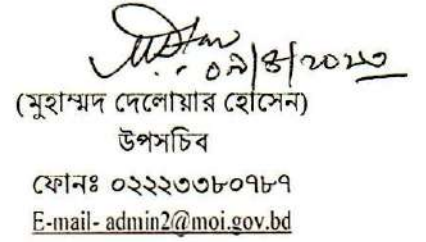 ০৯/৪/২০২৩
(মুহাম্মদ দেলোয়ার হোসেন)
উপসচিব
ফোনঃ ০২২২৩৩৮০৭৮৭
E-mail- admin2@moi.gov.bd